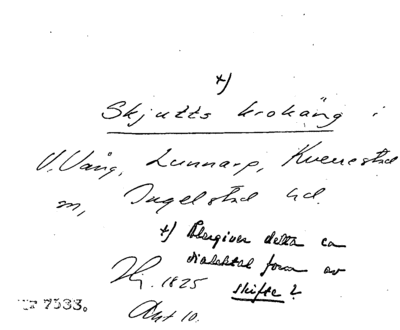 x)
Skjutts krokäng i
V. Vång, Lunnarp, Kverrestad
m, Ingelstad hd.
x) Återgiver detta en
dialektal form av
skifte?
Hj. 1825
Akt 10.
7533.